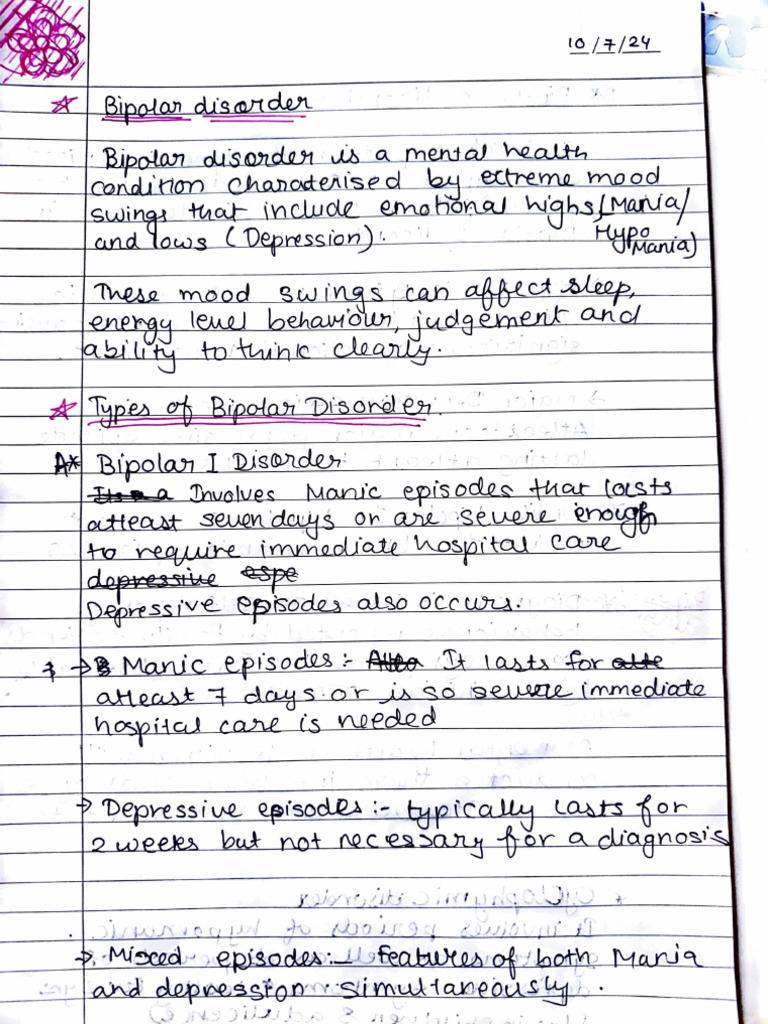 10/7/24
☆ Bipolar disorder
Bipolar disorder is a mental health
condition charaterised by extreme mood
swings that include emotional highs [Mania/
Hypo
Mania)
and lows (Depression).
These mood swings can affect sleep,
energy level behaviour, judgement and
ability to think clearly.
☆ Types of Bipolar Disorder.
A* Bipolar I Disorder:
Its a Involves Manic episodes that lasts
atleast seven days or are severe enough
to require immediate hospital care
depressive espe
Depressive episodes also occurs.
→ B Manic episodes:- It lasts for atle
atleast 7 days or is so severe immediate
hospital care is needed
→ Depressive episodes:- typically lasts for
2 weeks but not necessary for a diagnosis
→. Mixed episodes:- features of both Mania
and depression simultaneously.